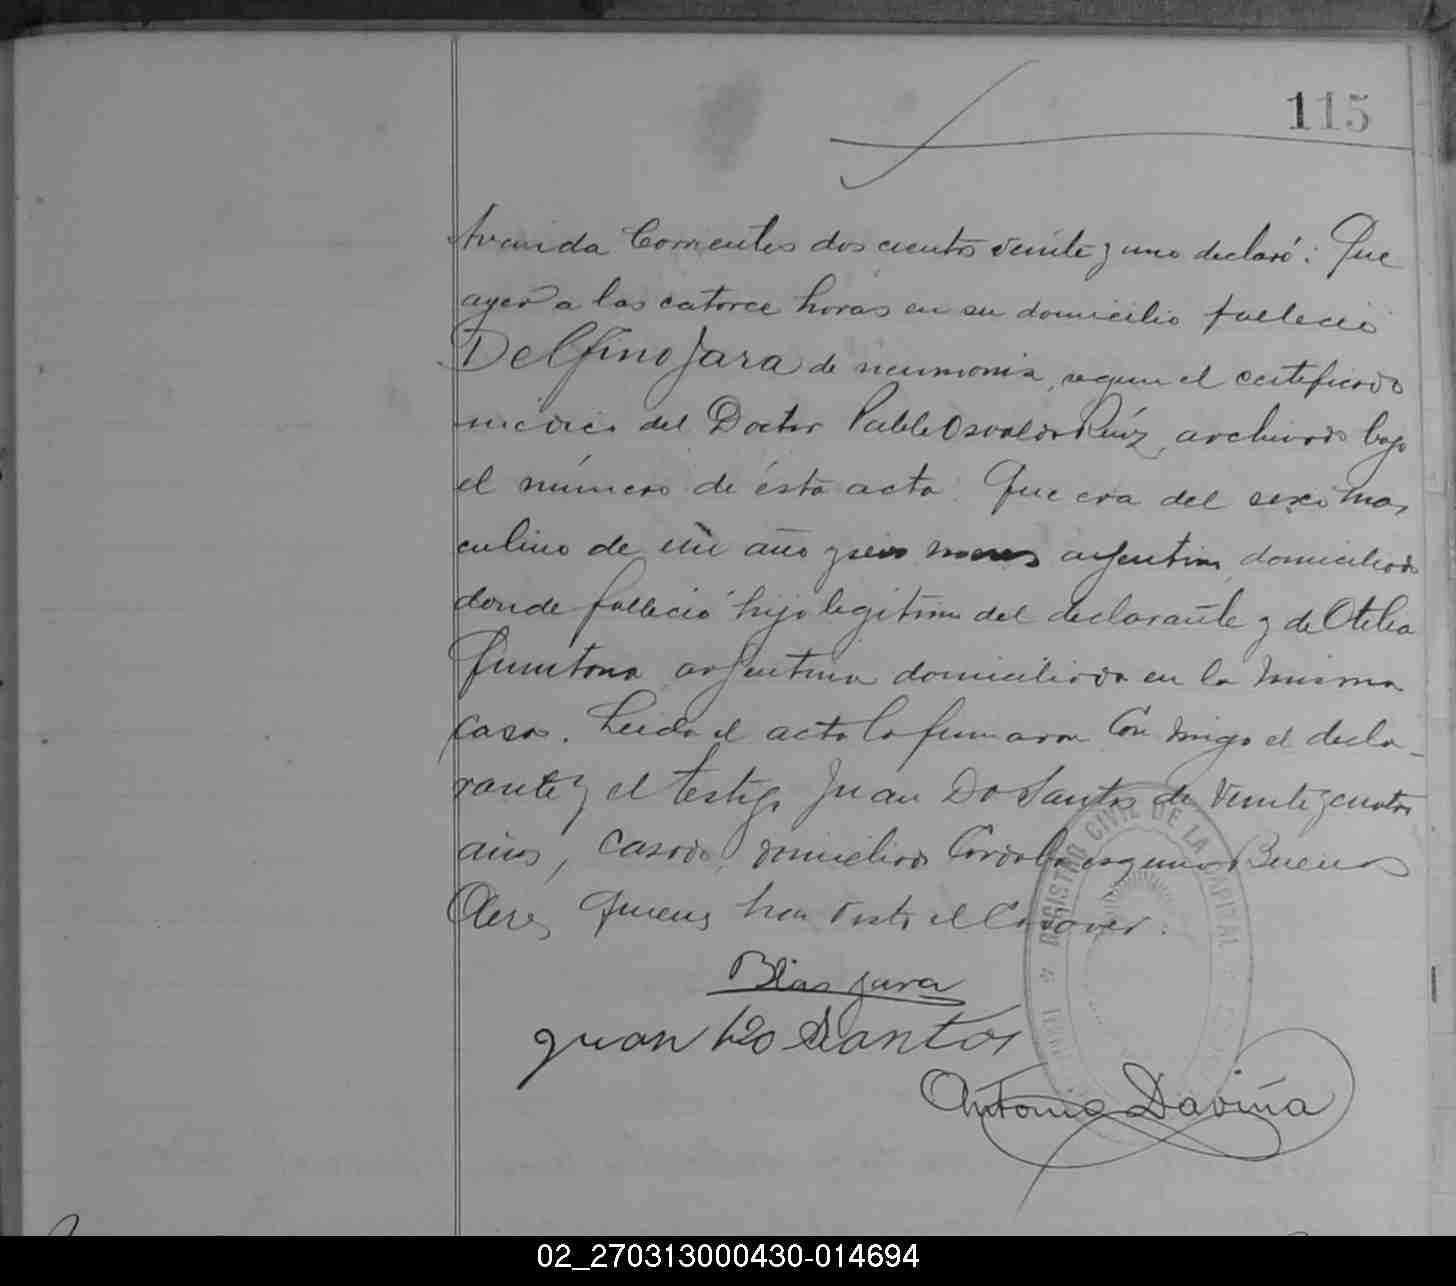 115
Avenida Corrientes doscientos veinte y uno declaró: Que
ayer a las catorce horas en su domicilio falleció
Delfino Jara de neumonia, segun el certificado
médico del Doctor Pablo Osvaldo Ruíz, archivado bajo
el número de ésta acta. Que era del sexo mas,
culino de un año y seis meses argentino domiciliado
donde falleció hijo legitimo del declarante y de Otilia
Quintana argentina domiciliada en la misma
casa. Leida el acta la firmaron Con migo el decla-
rante y el testigo Juan Do Santos de veinte y cuatro
años, casado, domiciliado Cordoba esquina Buenos
Aires quienes han visto el Cadáver.
Blas Jara
Juan Do Santos
Antonio Daviña
REGISTRO CIVIL DE LA CAPITAL
02_270313000430-014694